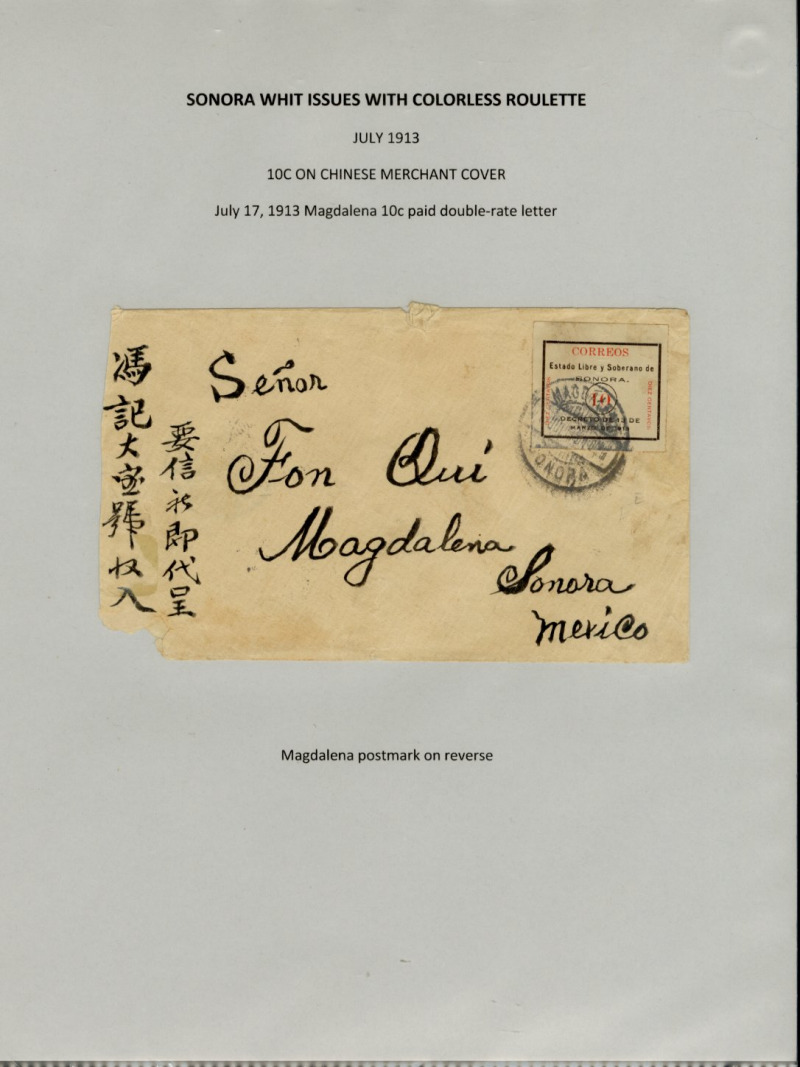 SONORA WHIT ISSUES WITH COLORLESS ROULETTE
JULY 1913
10C ON CHINESE MERCHANT COVER
July 17, 1913 Magdalena 10c paid double-rate letter
馮記大宝號收入
要信祈即代呈
Señor
Fon Qui
Magdalena
Sonora
Mexico
CORREOS
Estado Libre y Soberano de
SONORA.
10
DECRETO DE 13 DE
DIEZ CENTAVOS
SONORA
Magdalena postmark on reverse